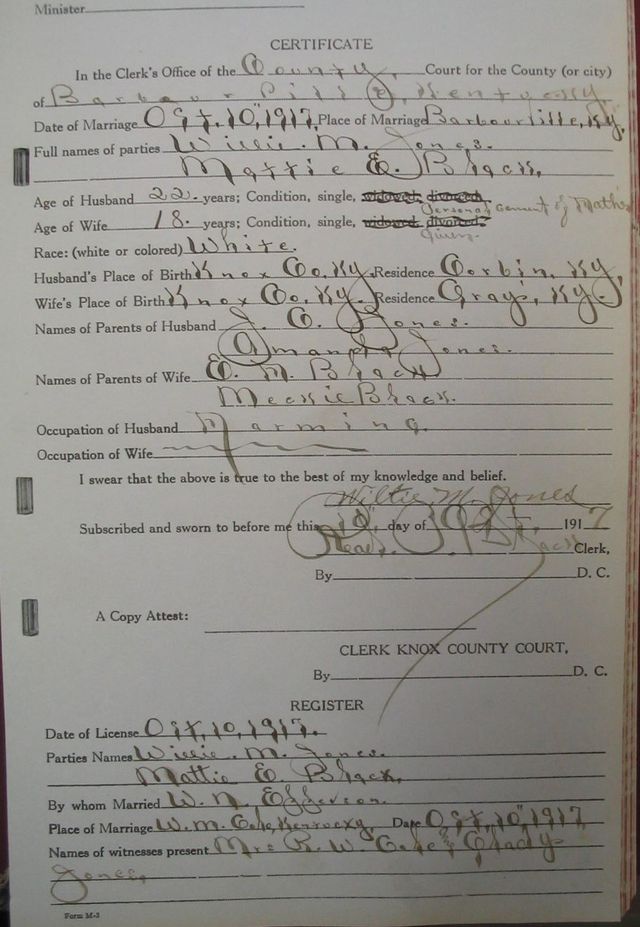 Minister
CERTIFICATE
In the Clerk's Office of the County, Court for the County (or city)
of Barbourville, Kentucky
Date of Marriage Oct. 10, 1917, Place of Marriage Barbourville, Ky.
Full names of parties Willie. M. Jones.
Mattie E. Black,
Age of Husband 22. years; Condition, single, widowed, divorced,
Personal of
Age of Wife 18. years; Condition, single, widowed, divorced,
Given.
Race: (white or colored) White.
Husband's Place of Birth Knox Co, Ky, Residence Corbin, Ky,
Wife's Place of Birth Knox Co, Ky. Residence Grays, Ky.
Names of Parents of Husband J. C. Jones.
Amanda Jones.
Names of Parents of Wife E. M. Black
Black.
Occupation of Husband Farming.
Occupation of Wife
I swear that the above is true to the best of my knowledge and belief.
Willie M. Jones
Subscribed and sworn to before me this 10", day of Oct., 1917
Read. Black Clerk,
By D. C.
A Copy Attest:
CLERK KNOX COUNTY COURT,
By D. C.
REGISTER
Date of License Oct, 10, 1917.
Parties Names Willie. M. Jones.
Mattie E. Black,
By whom Married W. N.
Place of Marriage W. M. Kentucky Date Oct, 10", 1917
Names of witnesses present Mrs R. W. &
Jones,
Form M-3